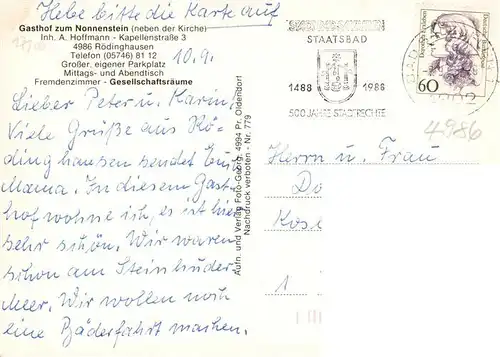 Hebe bitte die Karte auf
Gasthof zum Nonnenstein (neben der Kirche)
Inh. A. Hoffmann - Kapellenstraße 3
4986 Rödinghausen
Telefon (05746) 81 12
Großer, eigener Parkplatz
Mittags- und Abendtisch
Fremdenzimmer - Gesellschaftsräume
10.9.
Lieber Peter u. Karin,
Viele Grüße aus Rö-
dinghausen sendet Eure
Mama. In diesem Gast-
hof wohne ich, es ist hier
sehr schön. Wir waren
schon am Steinhuder
Meer. Wir wollen noch
eine Bäderfahrt machen.
Aufn. und Verlag Foto-Georg, 4994 Pr. Oldendorf
Nachdruck verboten - Nr. 779
STAATSBAD
1488 1986
500 JAHRE STADTRECHTE
60
4986
Herrn u. Frau
Do
Kose
1